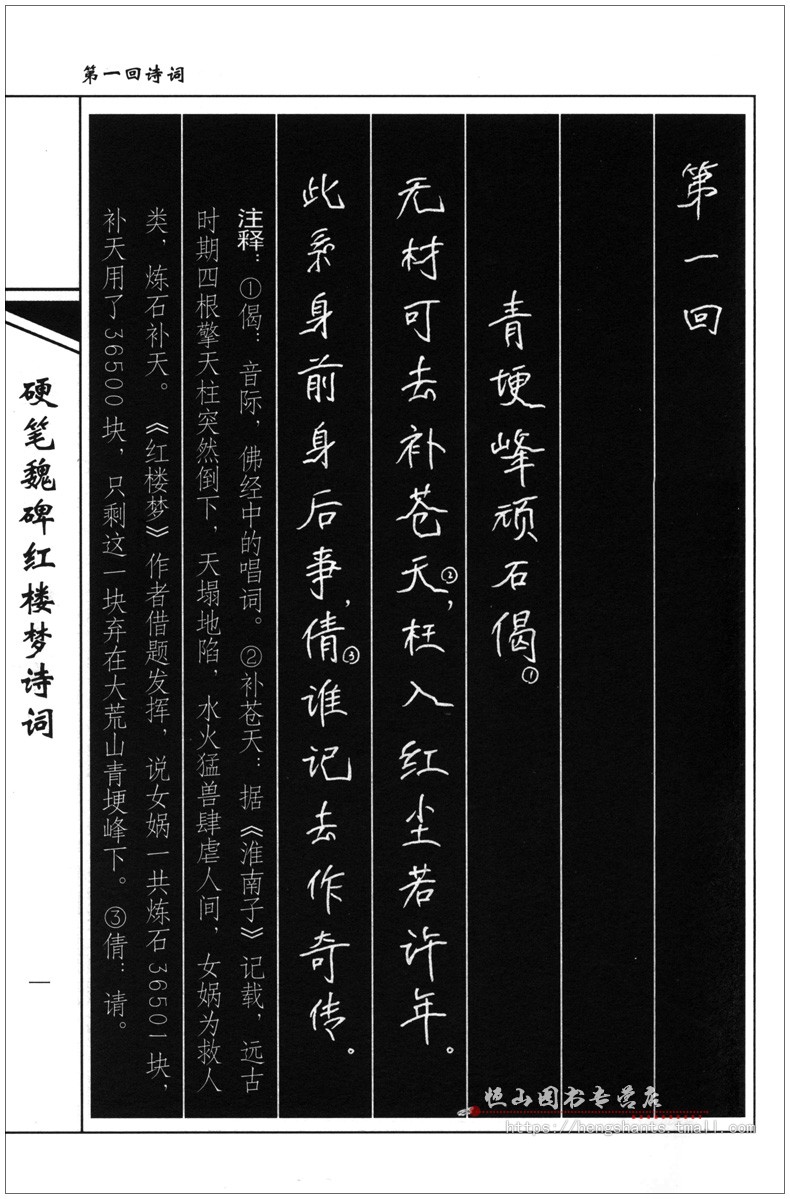 第一回诗词
第一回
青埂峰顽石偈①
无材可去补苍天②，枉入红尘若许年。
此系身前身后事，倩③谁记去作奇传。
注释：①偈：音际，佛经中的唱词。②补苍天：据《淮南子》记载，远古
时期四根擎天柱突然倒下，天塌地陷，水火猛兽肆虐人间，女娲为救人
类，炼石补天。《红楼梦》作者借题发挥，说女娲一共炼石36501块，
补天用了36500块，只剩这一块弃在大荒山青埂峰下。③倩：请。
硬笔魏碑红楼梦诗词
一
恒山图书专营店
https://hengshants.tmall.com